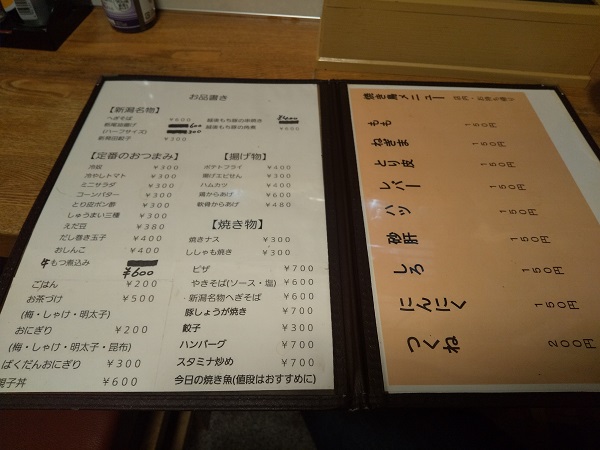 お品書き
【新潟名物】
へぎそば ￥600
栃尾油揚げ 600
(ハーフサイズ) 300
新発田餃子 ￥300
越後もち豚の串焼き ￥400
越後もち豚の角煮 ￥600
【定番のおつまみ】
冷奴 ￥300
冷やしトマト ￥300
とこサラダ ￥300
コーンバター ￥300
とり皮ポン酢 ￥300
しゅうまい三種 ￥300
えだ豆 ￥380
だし巻き玉子 ￥400
おしんこ ￥400
牛もつ煮込み
￥600
ごはん ￥200
お茶づけ ￥500
(梅・しゃけ・明太子)
おにぎり ￥200
(梅・しゃけ・明太子・昆布)
ばくだんおにぎり ￥300
親子丼 ￥600
【揚げ物】
ポテトフライ ￥400
揚げエビせん ￥300
ハムカツ ￥400
鶏からあげ ￥600
軟骨からあげ ￥480
【焼き物】
焼きナス ￥300
ししゃも焼き ￥300
ピザ ￥700
やきそば(ソース・塩) ￥600
新潟名物へぎそば ￥600
豚しょうが焼き ￥700
餃子 ￥300
ハンバーグ ￥700
スタミナ炒め ￥700
今日の焼き魚(値段はおすすめに)
焼き鳥メニュー
もも 150円
ねぎま 150円
とり皮 150円
レバー 150円
ハツ 150円
砂肝 150円
しろ 150円
にんにく 150円
つくね 200円